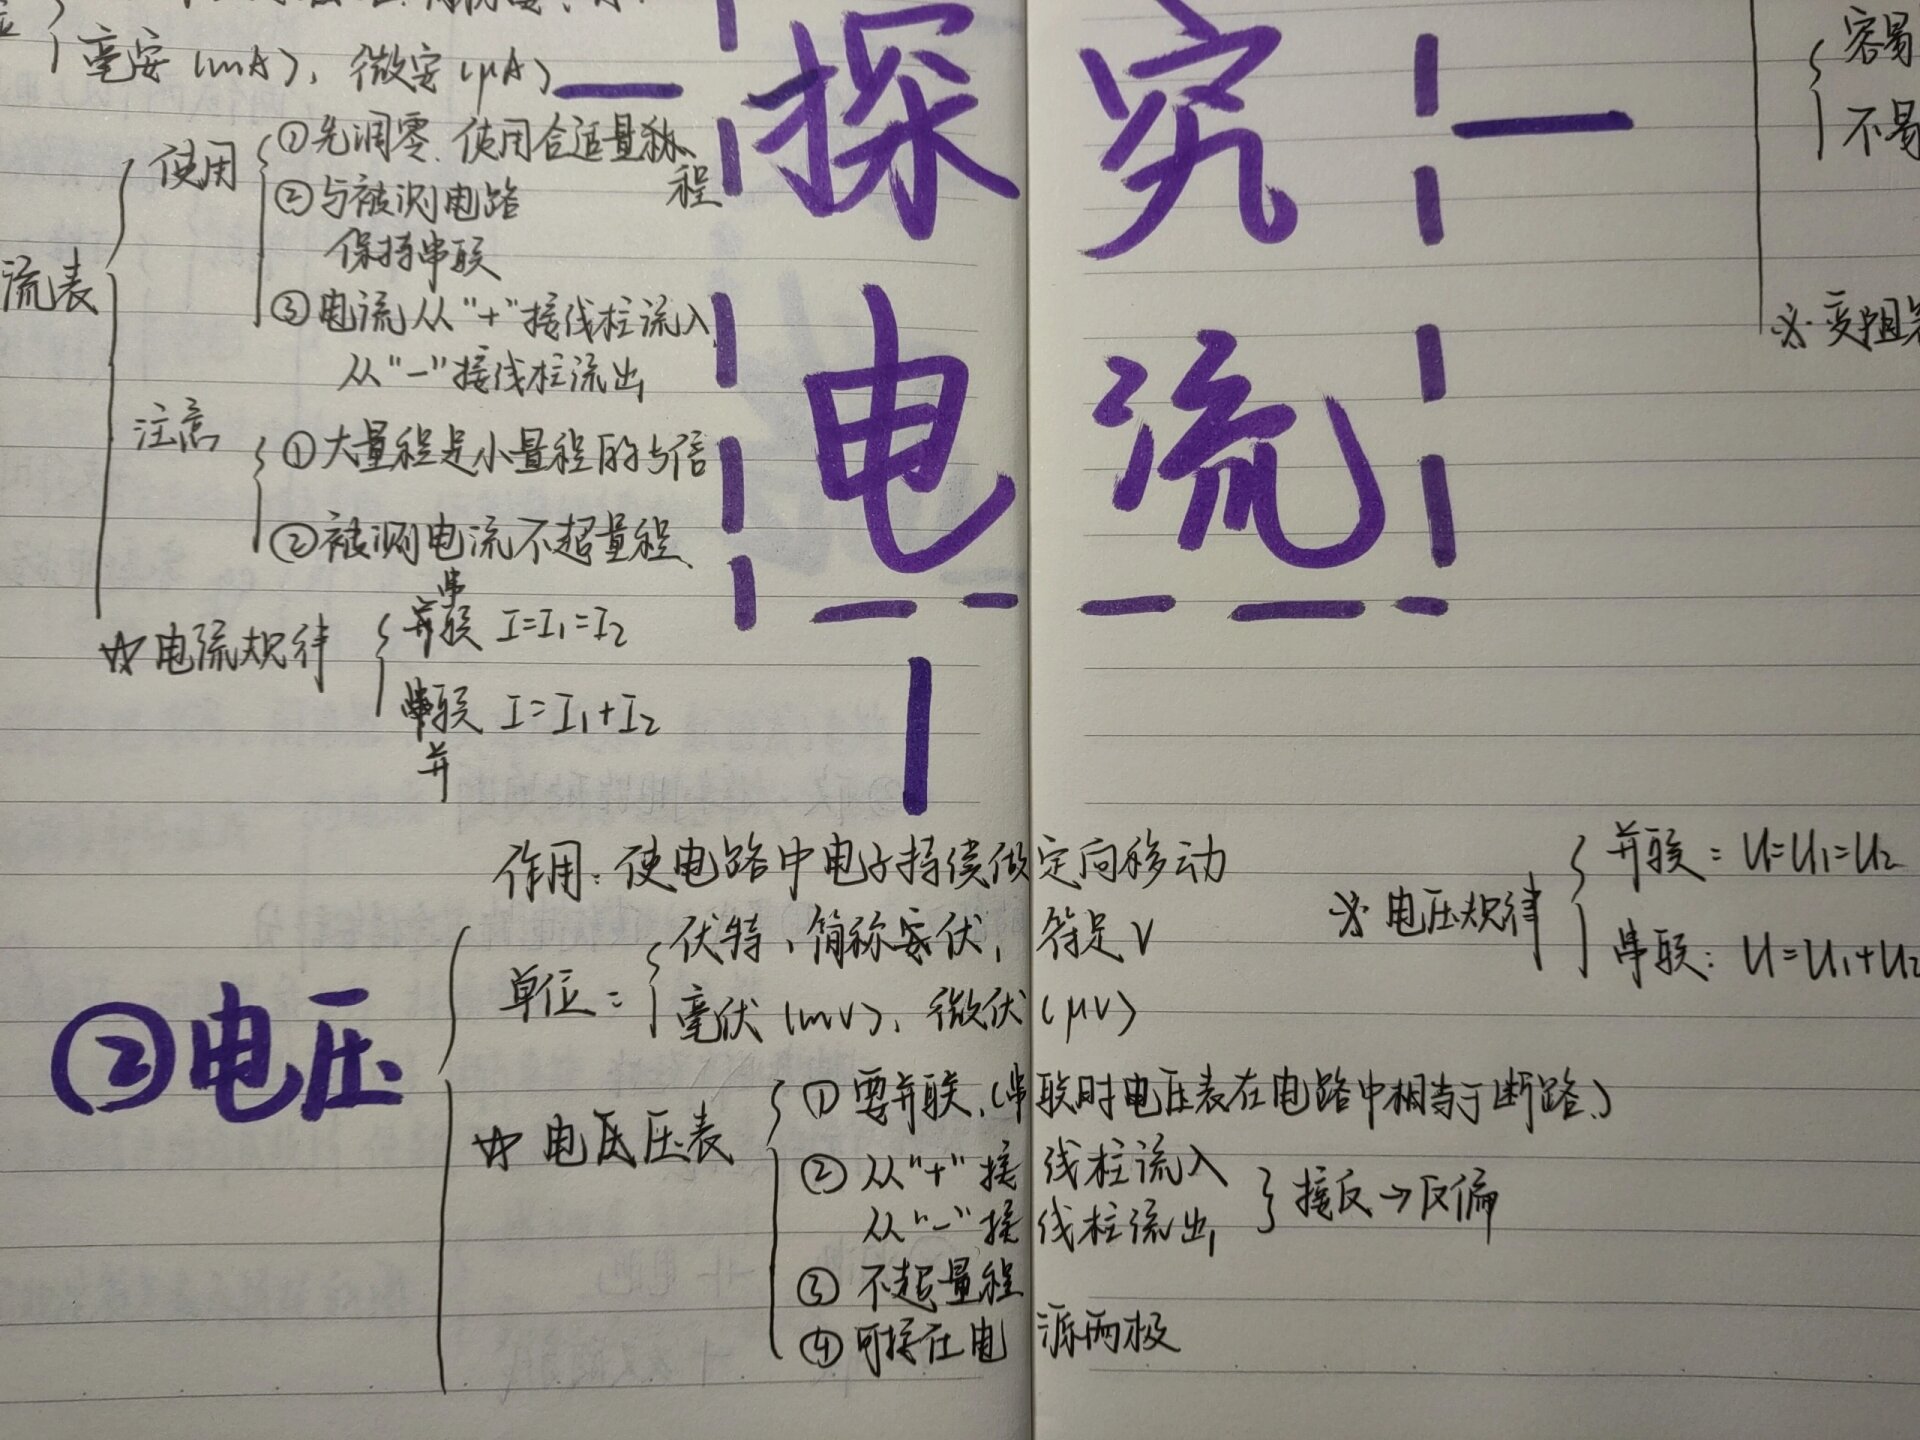 毫安(mA),微安(μA)
探究
电流
流表
使用
①先调零.使用合适量程
②与被测电路
保持串联
③电流从“+”接线柱流入,
从“-”接线柱流出
注意
①大量程是小量程的5倍
②被测电流不超量程.
☆电流规律
串联 I=I₁=I₂
并联 I=I₁+I₂
容易
不易
※变阻
②电压
作用:使电路中电子持续做定向移动
单位:
伏特,简称伏,符是V
毫伏(mV),微伏(μV)
※电压规律
并联:U=U₁=U₂
串联:U=U₁+U₂
☆电压表
①要并联.(串联时电压表在电路中相当于断路.)
②从“+”接线柱流入
从“-”接线柱流出
接反→反偏
③不超量程
④可接在电源两极